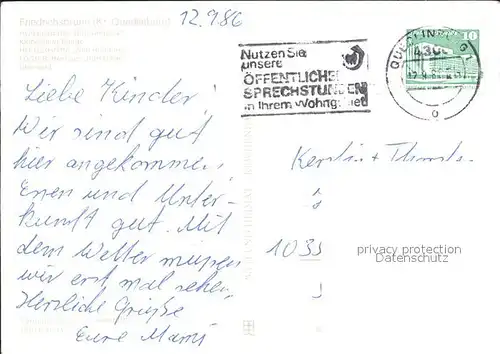 Friedrichsbrunn (Kr. Quedlinburg)
12.9.86
Nutzen Sie
unsere
ÖFFENTLICHEN
SPRECHSTUNDEN
in Ihrem Wohngebiet
QUEDLINBURG 1
4300
10
Liebe Kinder!
Wir sind gut
hier angekommen,
Essen und Unter-
kunft gut. Mit
dem Wetter müssen
wir erst mal sehen,
Herzliche Grüße
Eure Mami
Kerstin + Thorsten
1035
privacy protection
Datenschutz